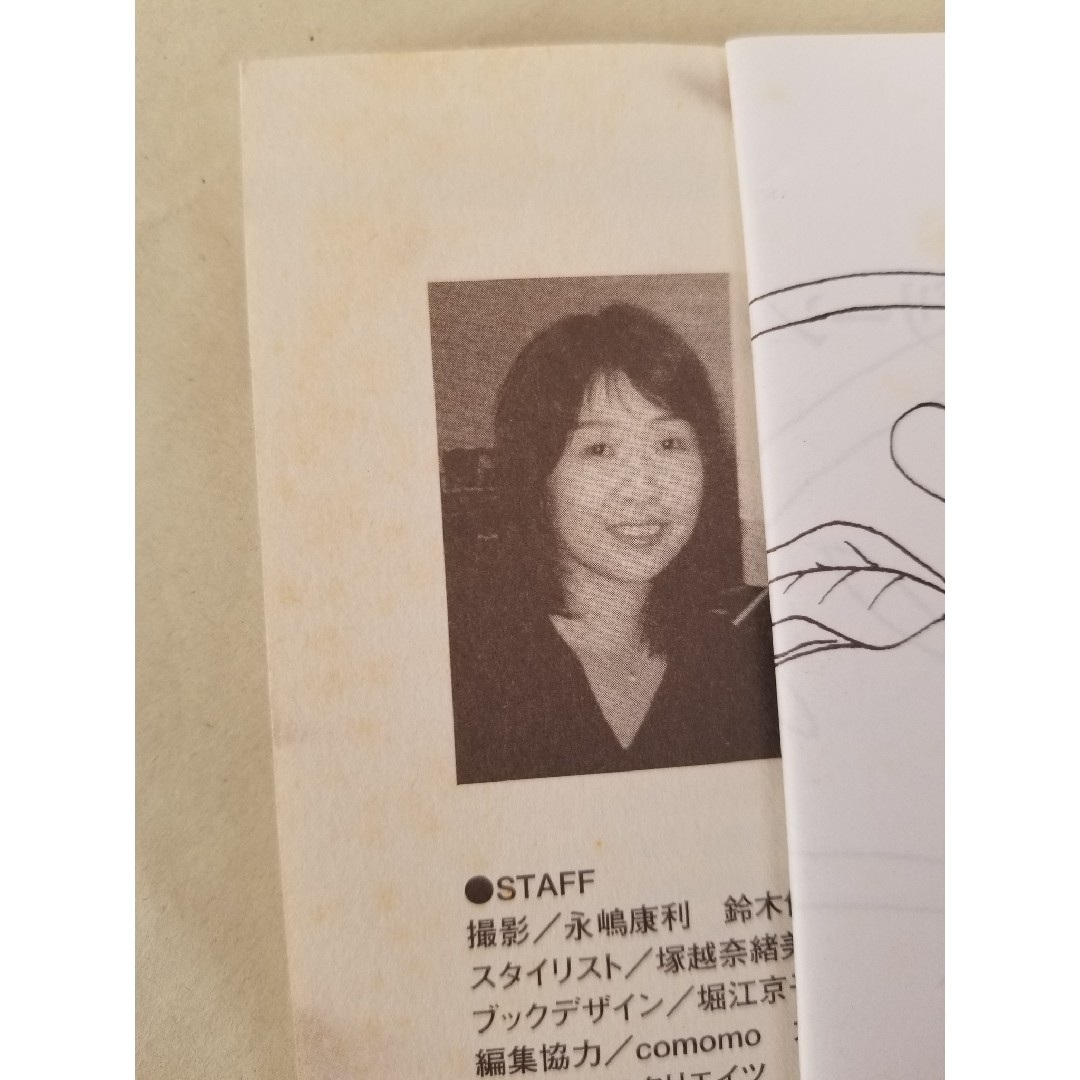 ●STAFF
撮影／永嶋康利 鈴木
スタイリスト／塚越奈緒美
ブックデザイン／堀江京子
編集協力／comomo
クリエイツ